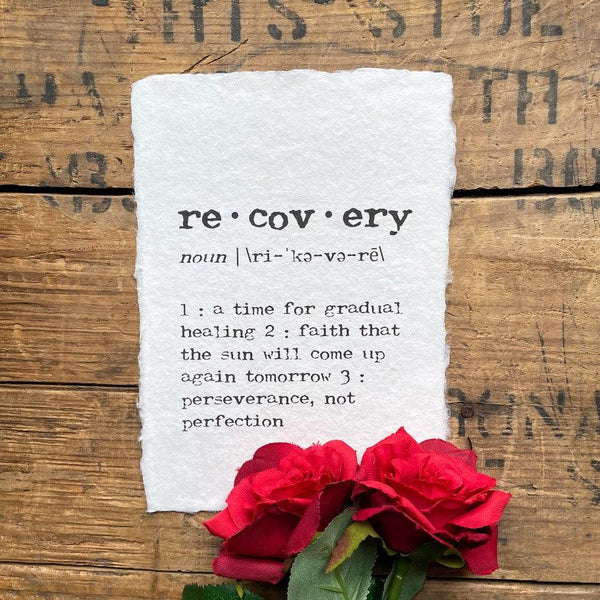 re•cov•ery
noun | \ri-ˈkə-və-rē\
1 : a time for gradual
healing 2 : faith that
the sun will come up
again tomorrow 3 :
perseverance, not
perfection